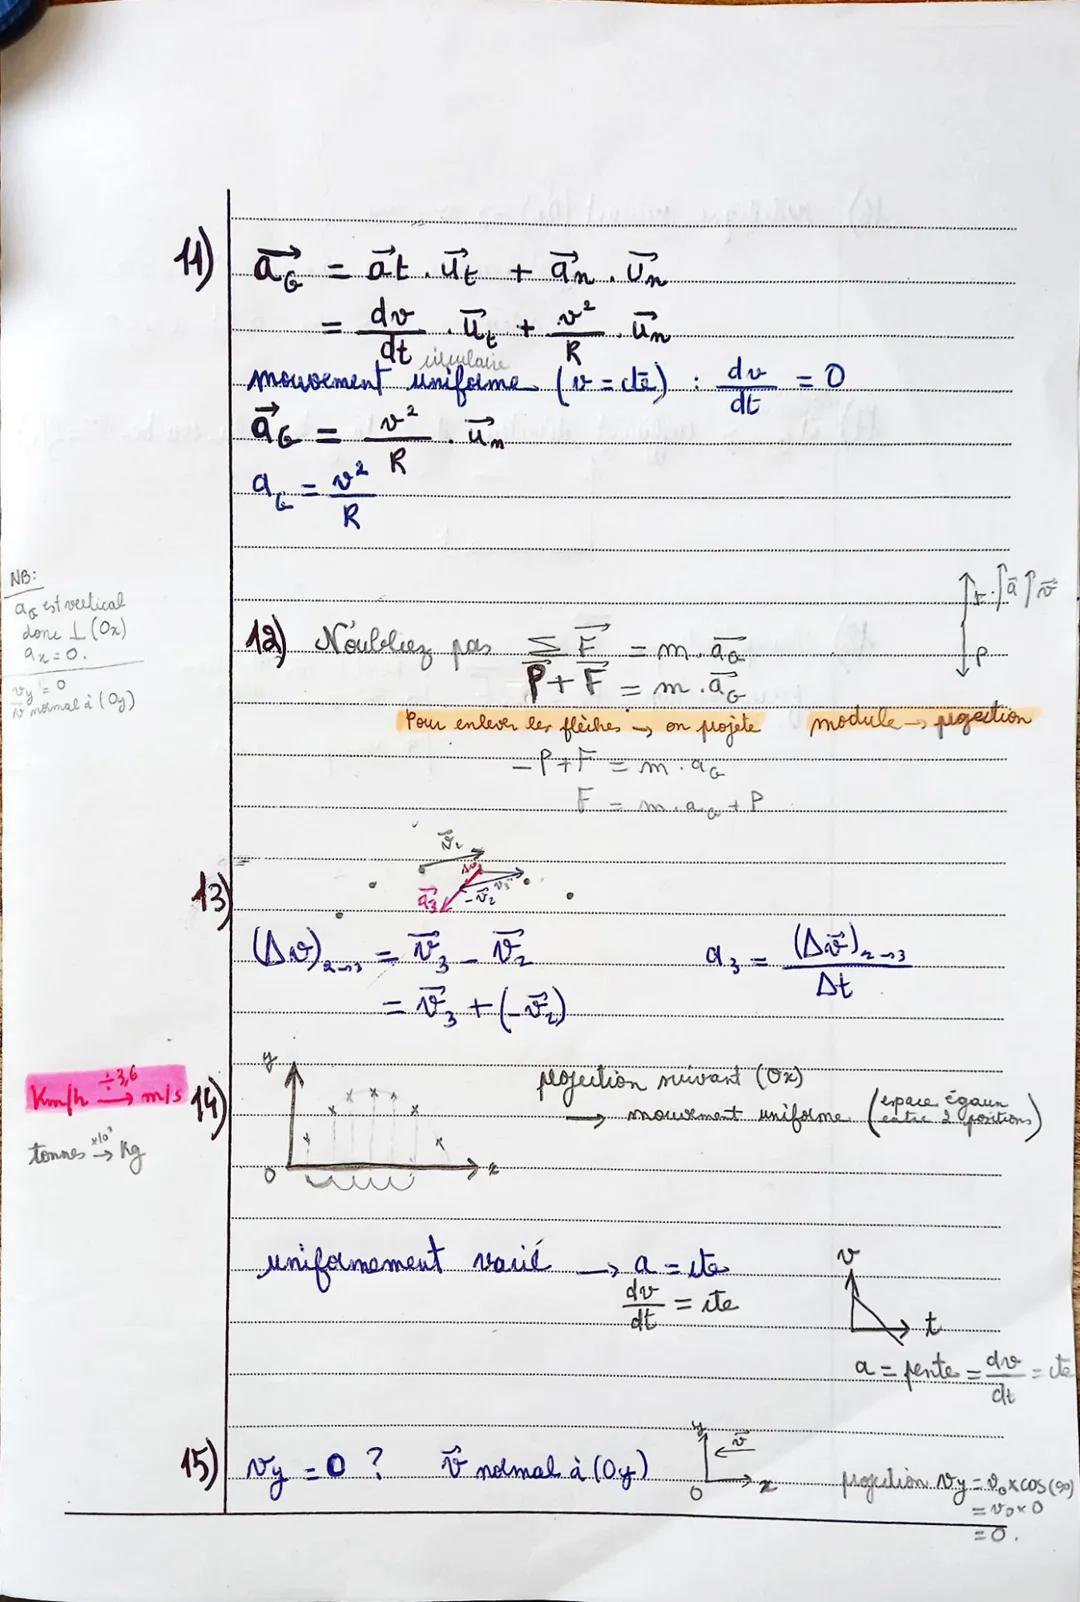 11) a_G = at . u_t + an . u_n
= dv/dt . u_t + v²/R . u_n
circulaire
mouvement uniforme (v = cte) : dv/dt = 0
a_G = v²/R . u_n
a_G = v²/R
NB:
a_G est vertical
donc ⊥ (Ox)
a_x = 0.
vy = 0
v normal à (Oy)
F a v
P
12) N'oubliez pas Σ F = m . a_G
P + F = m . a_G
Pour enlever les flèches → on projète module → projection
- P + F = m . a_G
F = m . a_G + P
v_2
Δv
a_3 -v_2 v_3
13)
(Δv)_2→3 = v_3 - v_2 a_3 = (Δv)_2→3 / Δt
= v_3 + (-v_2)
Km/h ÷3,6 → m/s
tonnes ×10³ → Kg
14) y
O x
projection suivant (Ox)
→ mouvement uniforme (espace égaux entre 2 positions)
uniformement varié → a = cte
dv/dt = cte
v
t
a = pente = dv/dt = cte
15) vy = 0 ? v normal à (Oy)
y v
O x
projection vy = v_0 x cos(90)
= v_0 x 0
= 0.